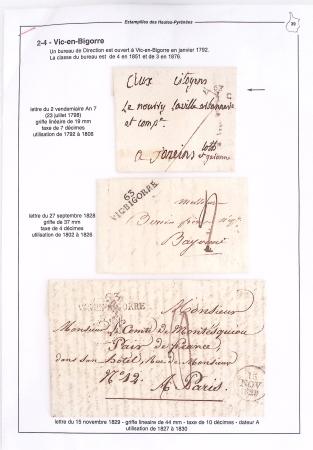 Estampilles des Hautes-Pyrénées
39
2-4 - Vic-en-Bigorre
Un bureau de Direction est ouvert à Vic-en-Bigorre en janvier 1792.
La classe du bureau est de 4 en 1851 et de 3 en 1876.
lettre du 2 vendemiaire An 7
(23 juillet 1798)
griffe linéaire de 19 mm
taxe de 7 décimes
utilisation de 1792 à 1808
Aux Citoyens
Le nourrit Laville
et comp.e
a
lettre du 27 septembre 1828
griffe de 37 mm
taxe de 4 décimes
utilisation de 1802 à 1826
63
VICBIGORRE
Bayonne
63
VIC-BIGORRE
Monsieur
Monsieur le Comte de Montesquiou
Pair de france
dans son hôtel, Rue de Monsieur
N.o 12. A Paris.
15
NOV
1829
lettre du 15 novembre 1829 - griffe linéaire de 44 mm - taxe de 10 décimes - dateur A
utilisation de 1827 à 1830